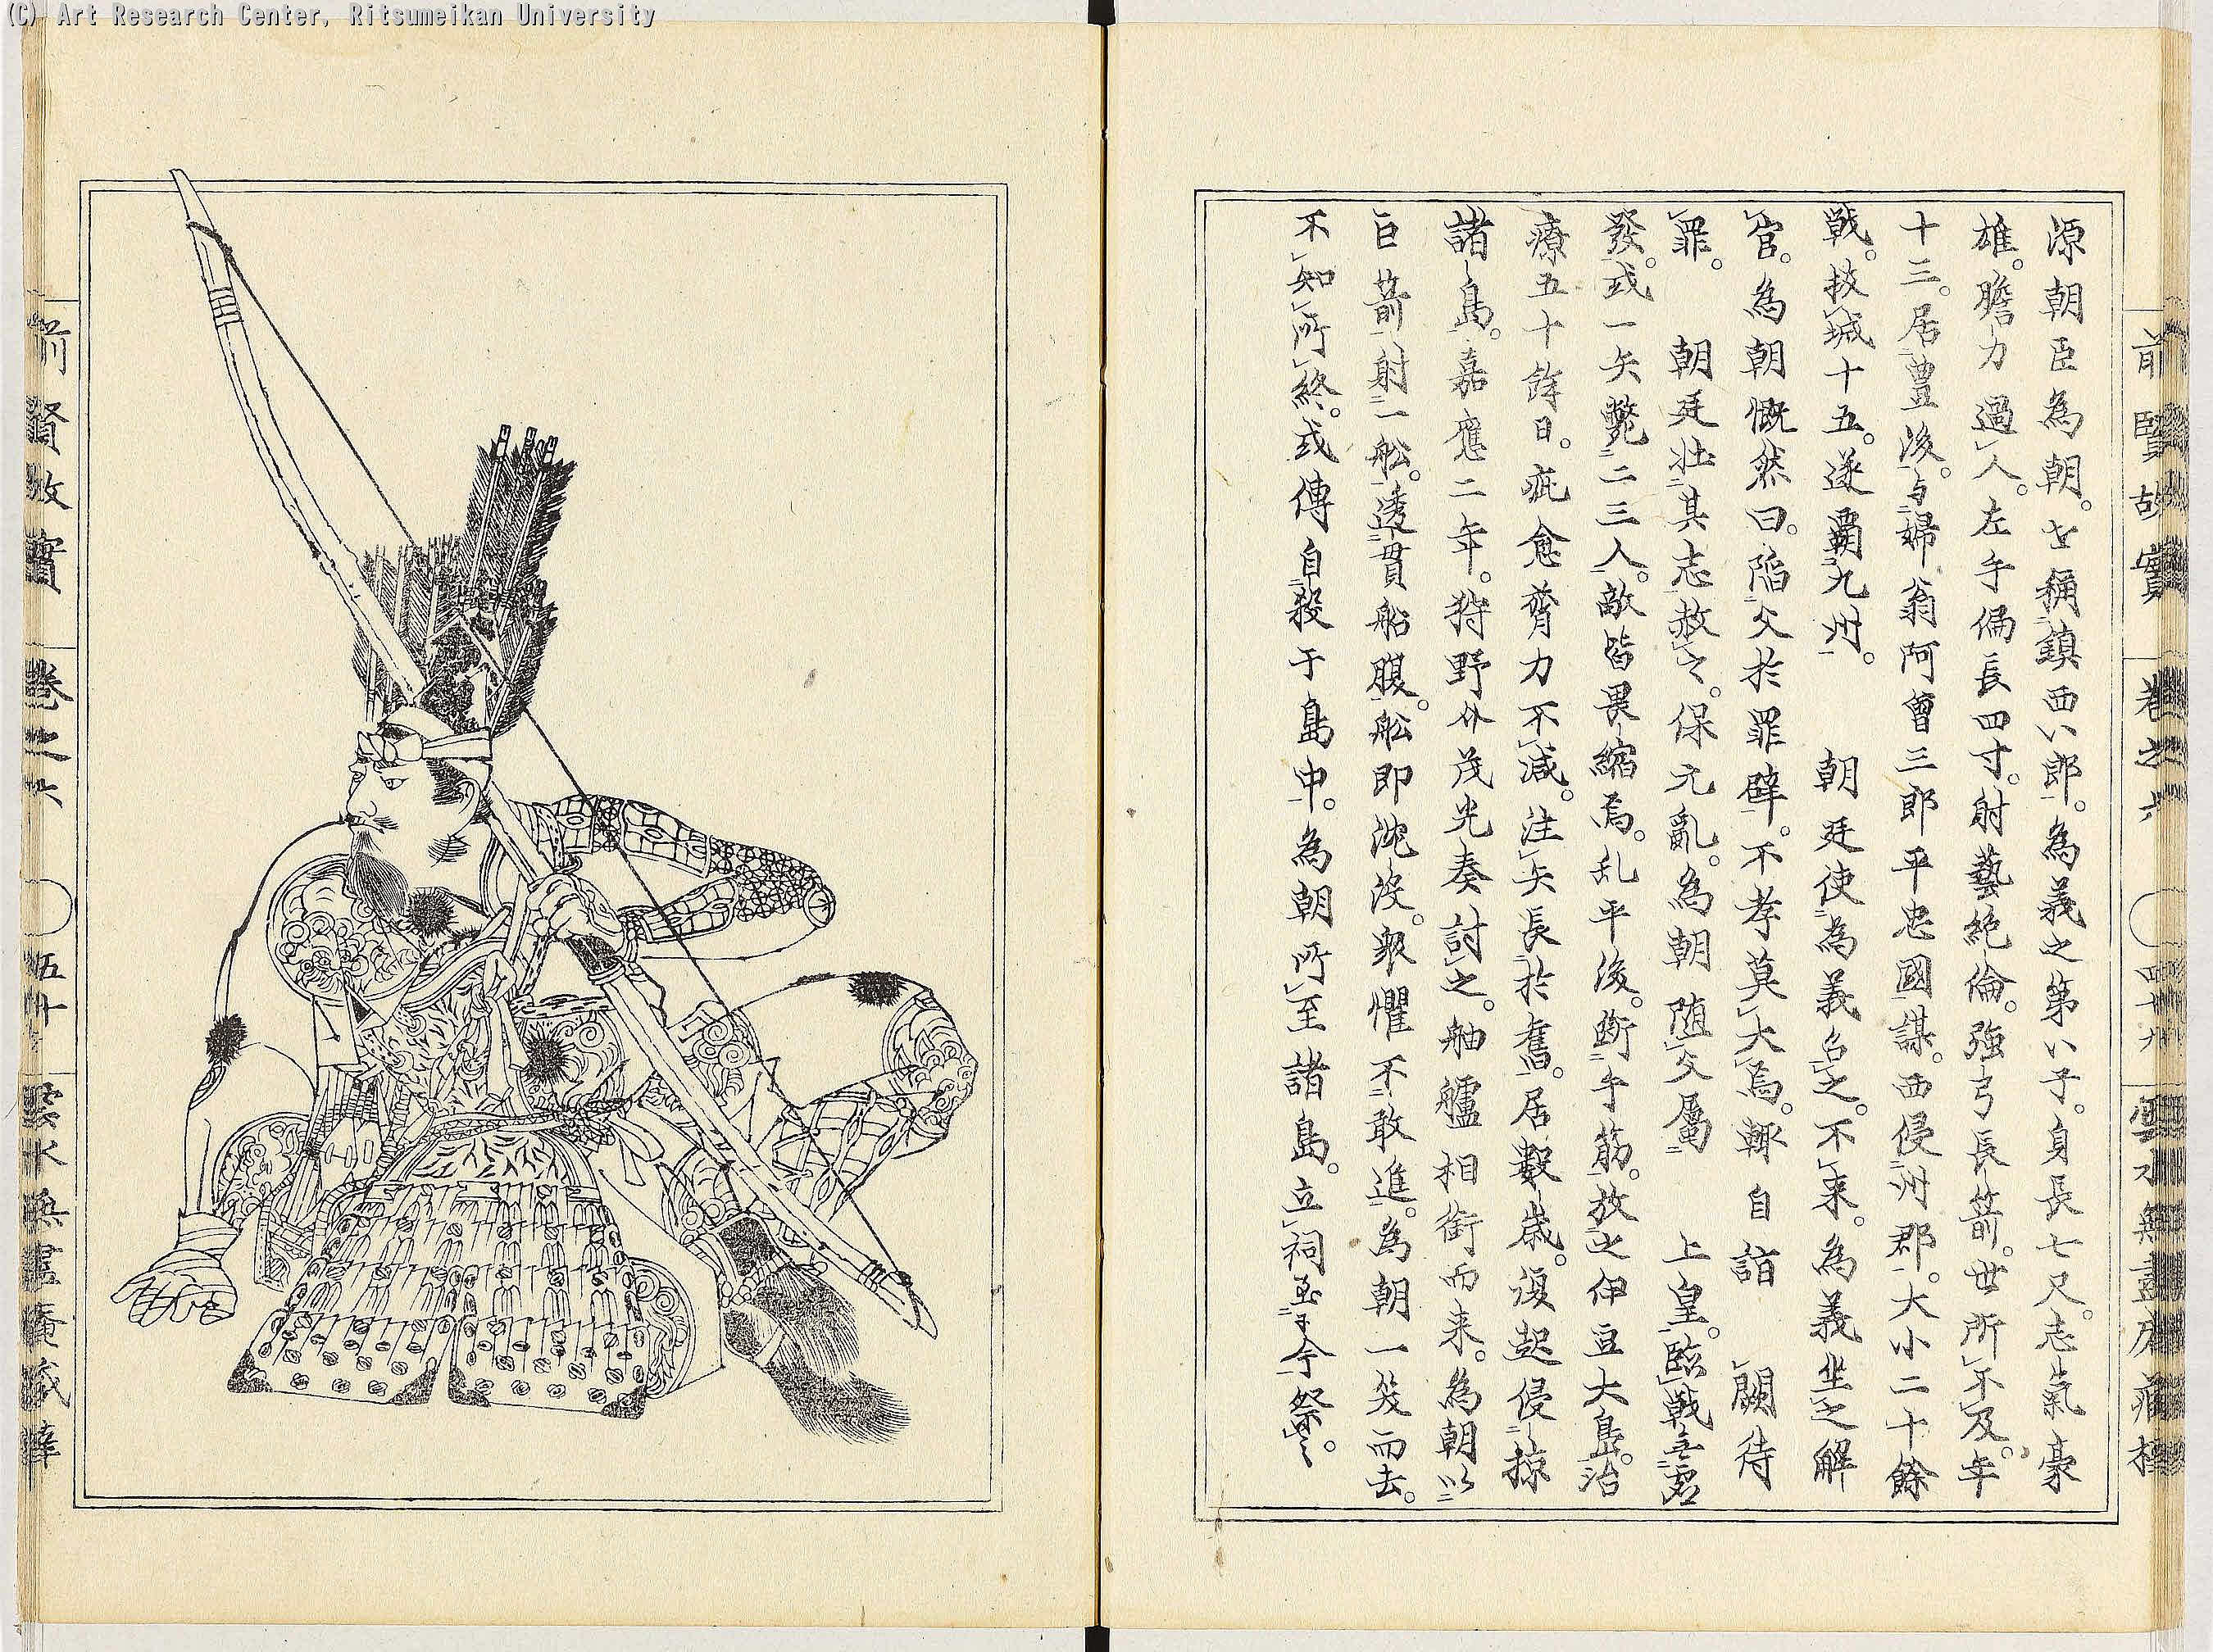 (C) Art Research Center, Ritsumeikan University
前賢故實　卷之六　四十九　雲水無盡庵藏梓
源朝臣為朝。世稱鎮西八郎。為義之第八子。身長七尺。志氣豪
雄。膽力過人。左手偏長四寸。射藝絶倫。強弓長箭。世所不及。年
十三。居豐後。与婦翁阿曾三郎平忠國謀。西侵州郡。大小二十餘
戰。拔城十五。遂霸九州。　朝廷使為義召之。不来。為義坐之解
官。為朝慨然曰。陷父於罪辟。不孝莫大焉。輙自詣　闕待
罪。　朝廷壮其志赦之。保元亂。為朝随父属　上皇。臨戦無虚
發。或一矢斃二三人。敵皆畏縮焉。乱平後。断手筋。放之伊豆大島。治
療五十餘日。疵愈膂力不减。注矢長於舊。居數歳。復起侵掠
諸島。嘉應二年。狩野介茂光奏討之。舳艫相銜而来。為朝以
巨箭射一舩。透貫船腹。舩即沈没。衆懼不敢進。為朝一笑而去。
不知所終。或傳自殺于島中。為朝所至諸島。立祠至于今祭之。
前賢故實　卷之六　五十　雲水無盡庵藏梓